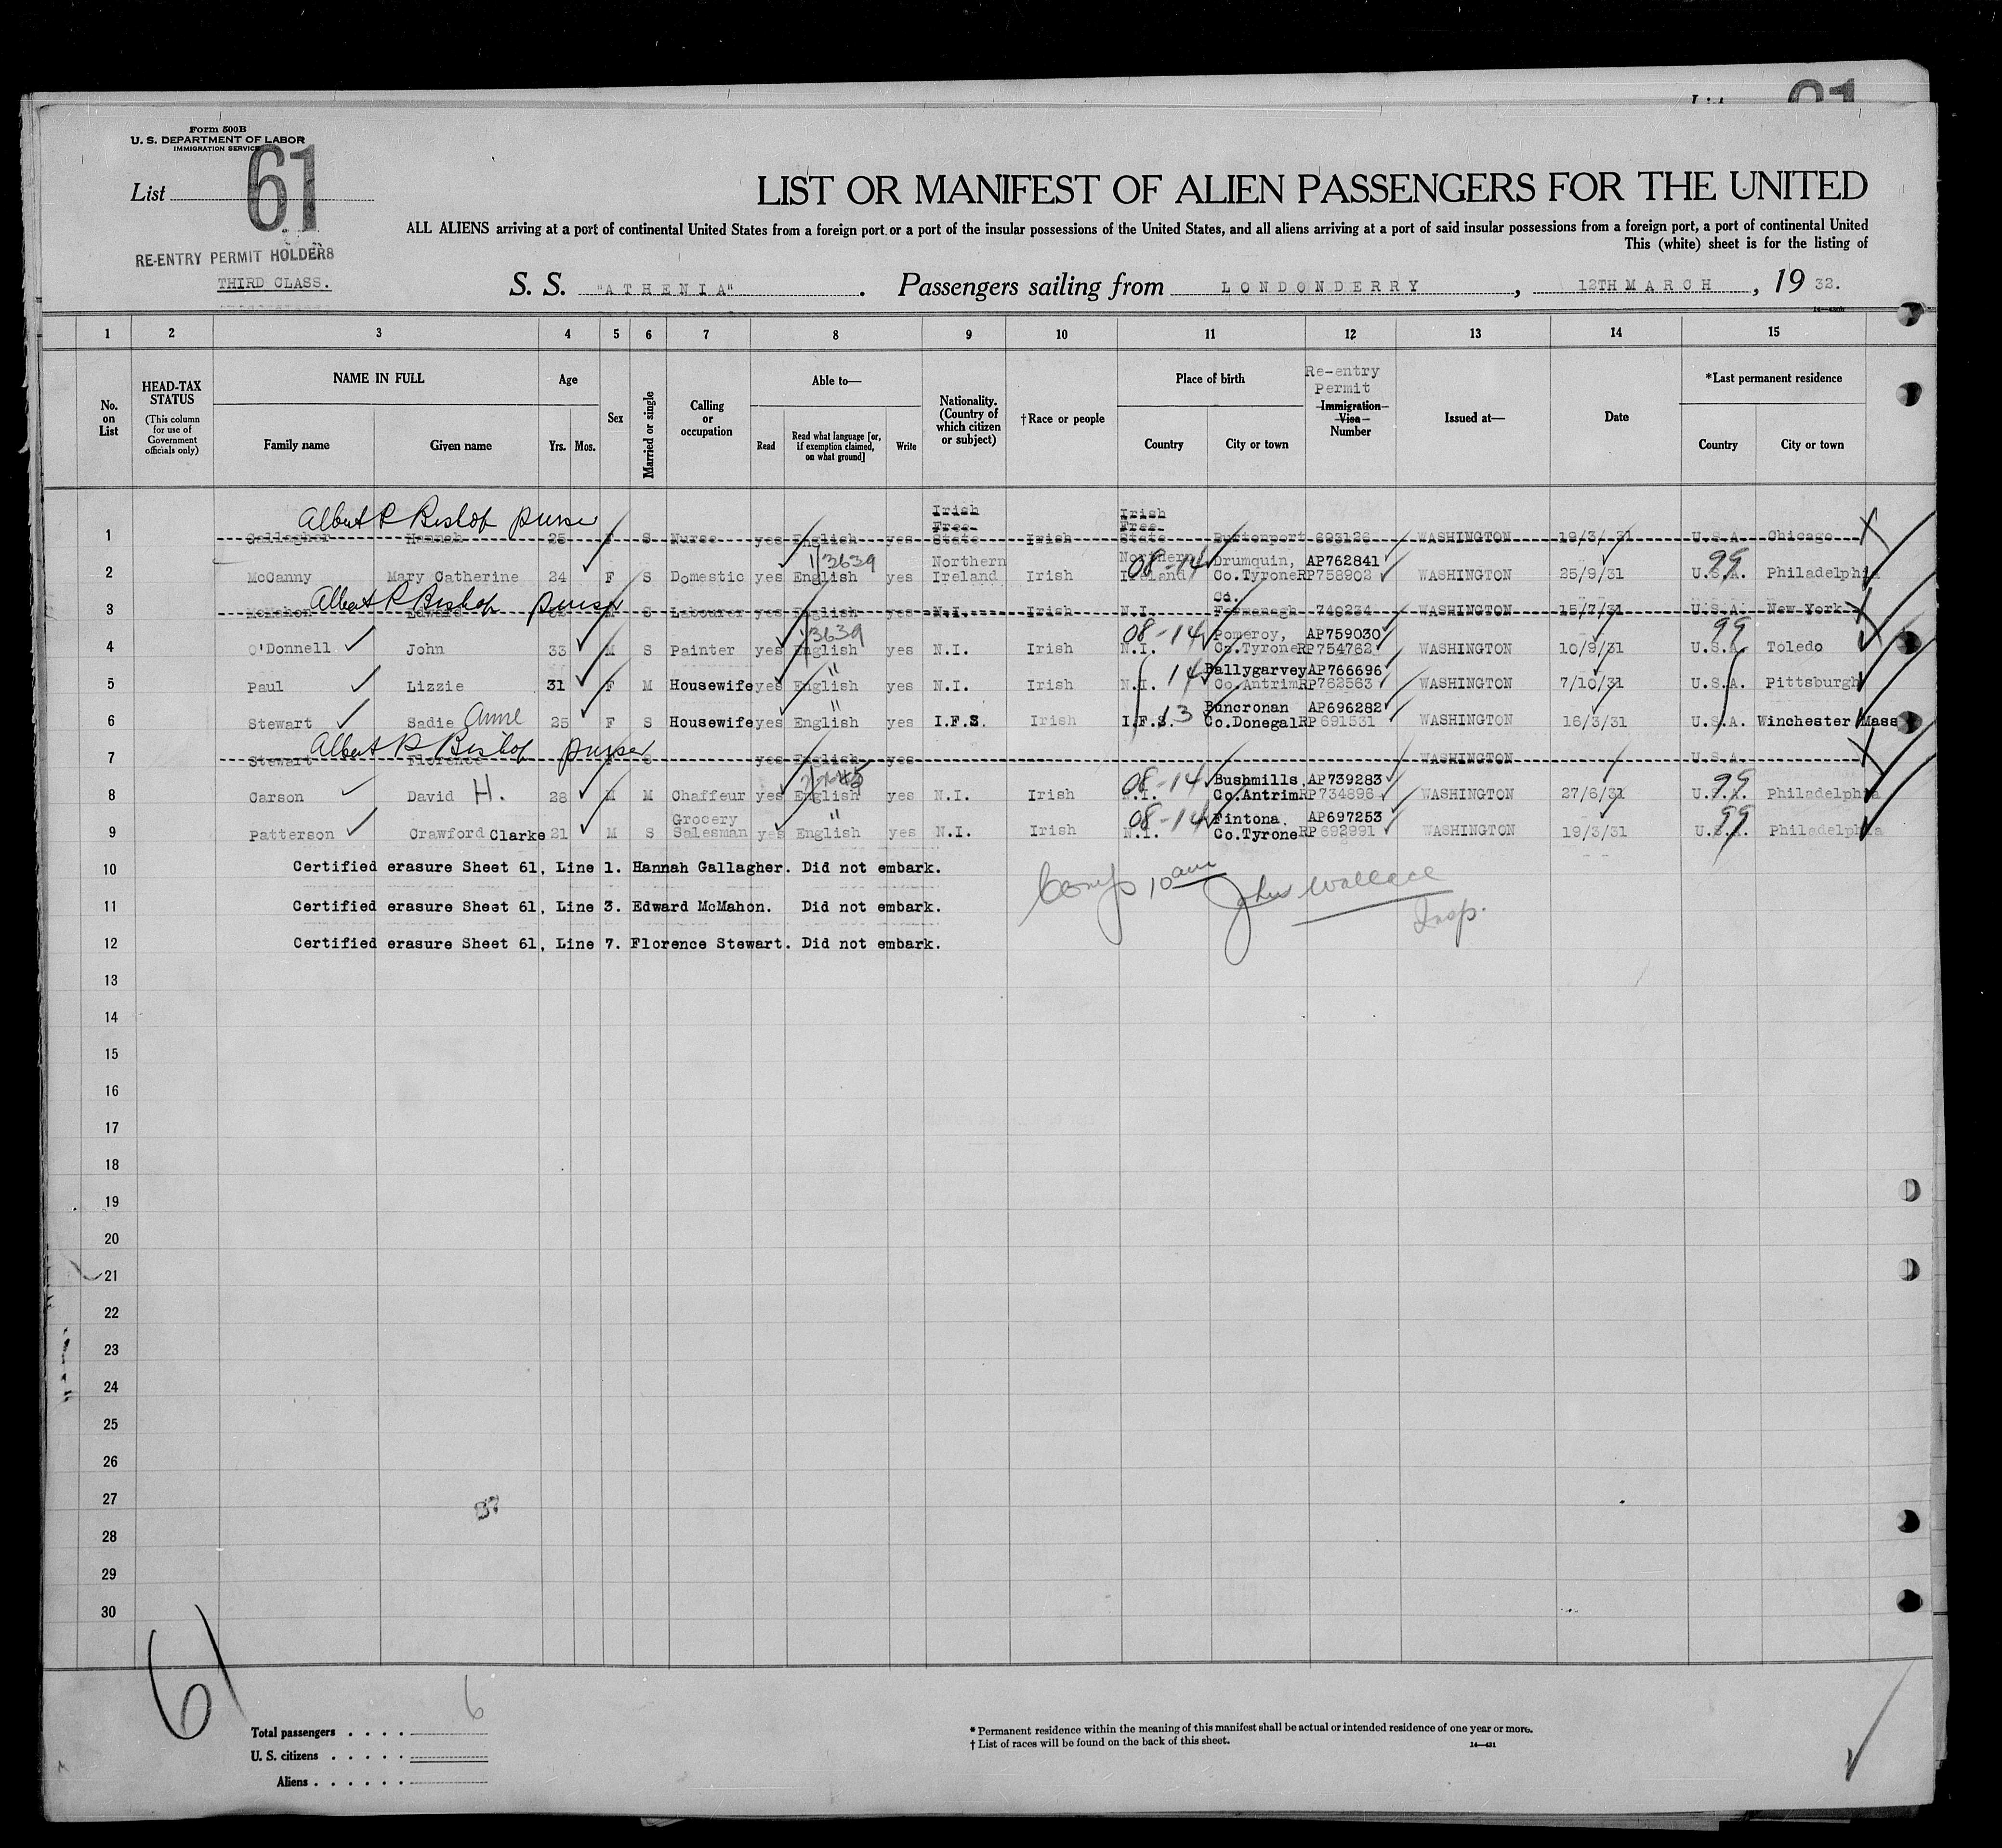 Form 500B
U. S. DEPARTMENT OF LABOR
IMMIGRATION SERVICE
List 61
LIST OR MANIFEST OF ALIEN PASSENGERS FOR THE UNITED
ALL ALIENS arriving at a port of continental United States from a foreign port or a port of the insular possessions of the United States, and all aliens arriving at a port of said insular possessions from a foreign port, a port of continental United
This (white) sheet is for the listing of
RE-ENTRY PERMIT HOLDERS
THIRD CLASS.
S. S. "ATHENIA". Passengers sailing from LONDONDERRY, 12TH MARCH, 19 32.
1 2 3 4 5 6 7 8 9 10 11 12 13 14 15
No. on List
HEAD-TAX STATUS
(This column for use of Government officials only)
NAME IN FULL
Family name Given name
Age
Yrs. Mos.
Sex
Married or single
Calling or occupation
Able to—
Read Read what language [or, if exemption claimed, on what ground] Write
Nationality. (Country of which citizen or subject)
†Race or people
Place of birth
Country City or town
Re-entry Permit
Immigration Visa Number
Issued at—
Date
*Last permanent residence
Country City or town
Albert R Bishop purser
1 Gallagher Hannah 25 F S Nurse yes English yes Irish Free State Irish Irish Free State Burtonport 693126 WASHINGTON 19/3/31 U.S.A. Chicago
13639
2 McCanny Mary Catherine 24 F S Domestic yes English yes Northern Ireland Irish Northern Ireland 08-14 Drumquin, Co.Tyrone AP762841 RP758902 WASHINGTON 25/9/31 U.S.A. 99 Philadelphia
Albert R Bishop purser
3 McMahon Edward M S Labourer yes English yes N.I. Irish N.I. Co. Fermanagh 740234 WASHINGTON 15/7/31 U.S.A. New York
13639
4 O'Donnell John 33 M S Painter yes English yes N.I. Irish N.I. 08-14 Pomeroy, Co.Tyrone AP759030 RP754762 WASHINGTON 10/9/31 U.S.A. 99 Toledo
5 Paul Lizzie 31 F M Housewife yes English " yes N.I. Irish N.I. 14 Ballygarvey Co.Antrim AP766696 RP762563 WASHINGTON 7/10/31 U.S.A. Pittsburgh
6 Stewart Sadie Anne 25 F S Housewife yes English " yes I.F.S. Irish I.F.S. 13 Buncronan Co.Donegal AP696282 RP691531 WASHINGTON 16/3/31 U.S.A. Winchester Mass
Albert R Bishop purser
7 Stewart Florence F S yes English yes WASHINGTON U.S.A.
8 Carson David H. 28 M M Chaffeur yes English yes N.I. Irish N.I. 08-14 Bushmills Co.Antrim AP739283 RP734896 WASHINGTON 27/6/31 U.S.A. 99 Philadelphia
9 Patterson Crawford Clarke 21 M S Grocery Salesman yes English " yes N.I. Irish N.I. 08-14 Fintona. Co.Tyrone AP697253 RP692991 WASHINGTON 19/3/31 U.S.A. 99 Philadelphia
10 Certified erasure Sheet 61, Line 1. Hannah Gallagher. Did not embark.
11 Certified erasure Sheet 61, Line 3. Edward McMahon. Did not embark.
12 Certified erasure Sheet 61, Line 7. Florence Stewart. Did not embark.
Comp 10 am John Wallace
Insp.
13
14
15
16
17
18
19
20
21
22
23
24
25
26
27
28
29
30
61
Total passengers . . . . 6
U. S. citizens . . . . .
Aliens . . . . . .
* Permanent residence within the meaning of this manifest shall be actual or intended residence of one year or more.
† List of races will be found on the back of this sheet.
14—431